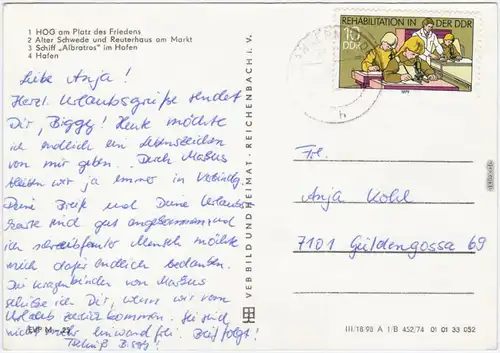 1 HOG am Platz des Friedens
2 Alter Schwede und Reuterhaus am Markt
3 Schiff „Albatros" im Hafen
4 Hafen
Liebe Anja!
Herzl. Urlaubsgrüße sendet
Dir „Biggy"! Heute möchte
ich endlich ein Lebenszeichen
von mir geben. Durch
bleiben wir ja immer in Verbindg.
Deine Briefe und Deine Urlaubs-
karte sind gut angekommen und
ich schreibfauler Mensch möchte
mich dafür endlich bedanken.
Die von
schicke ich Dir, wenn wir vom
Urlaub zurückkommen. Sie sind
nicht mehr einwandfrei.
Biggy!
EVP M -,25
VEB BILD UND HEIMAT · REICHENBACH i. V.
REHABILITATION IN DER DDR
10
DDR
1979
Frl.
Anja Kohl
7101 Güldengossa 69
III/18/98 A 1/B 452/74 01 01 33 052